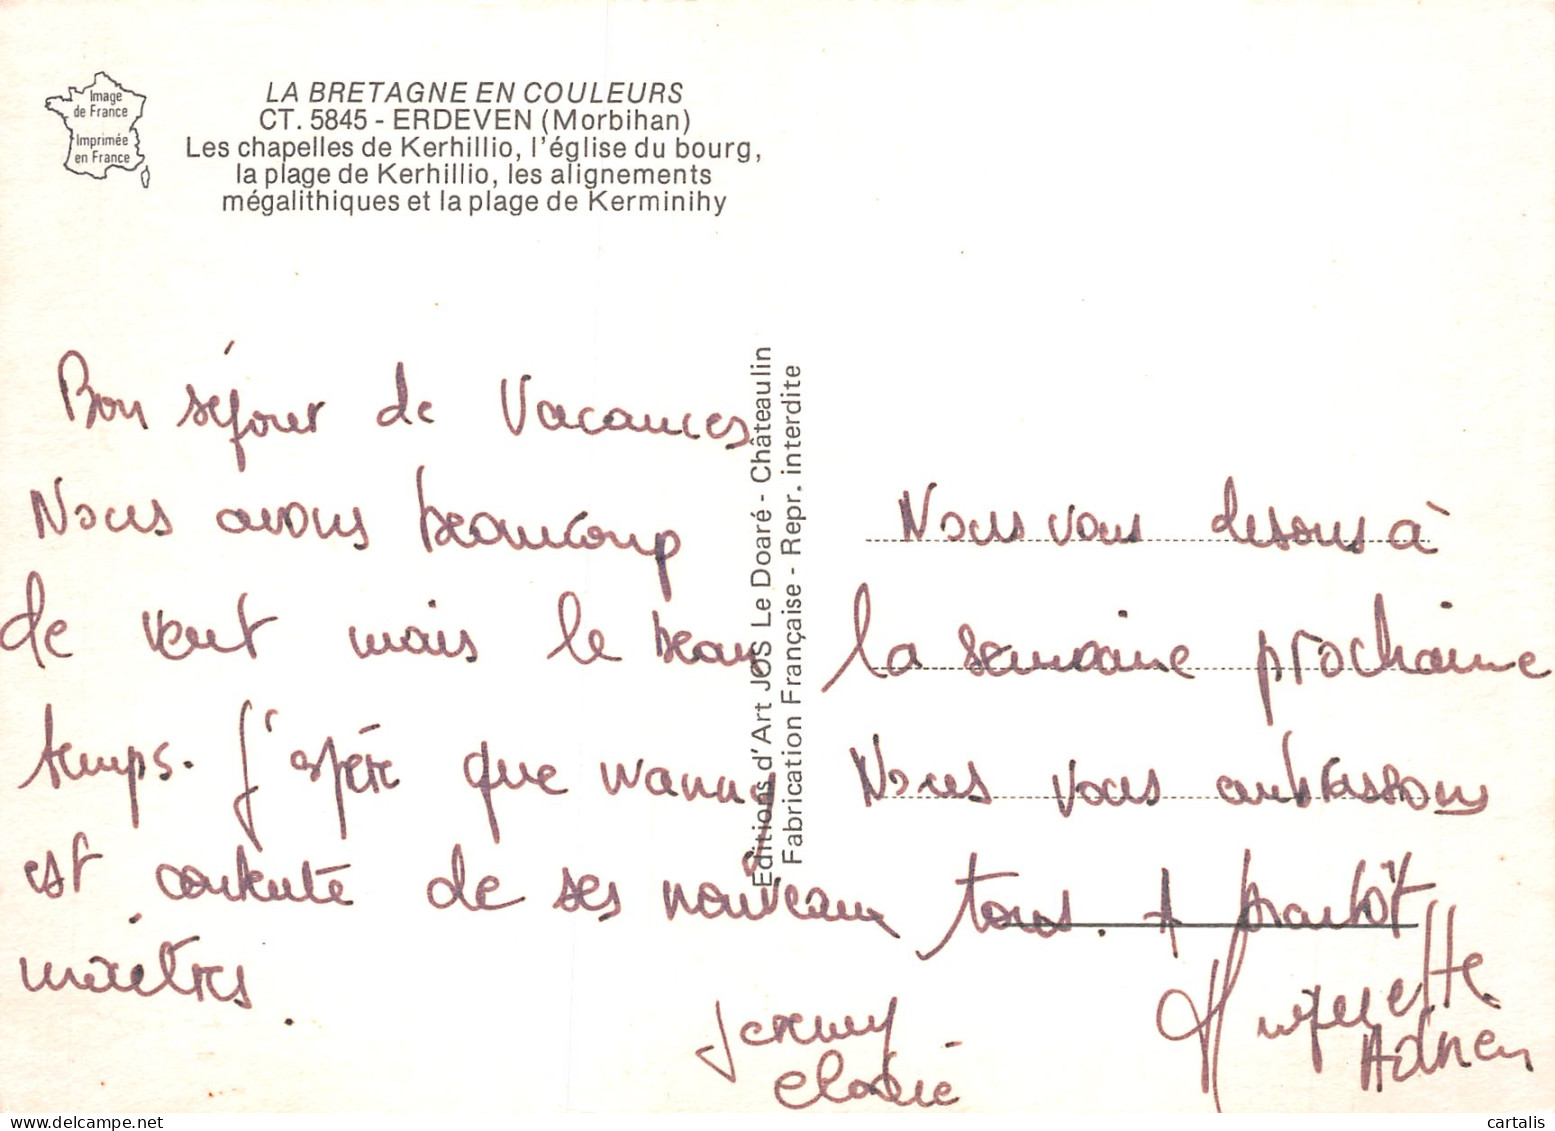 Image
de France
Imprimée
en France
LA BRETAGNE EN COULEURS
CT. 5845 - ERDEVEN (Morbihan)
Les chapelles de Kerhillio, l'église du bourg,
la plage de Kerhillio, les alignements
mégalithiques et la plage de Kerminihy
Bon séjour de Vacances
Nous avons beaucoup
de vent mais le beau
temps. J'espère que wanny
est contente de ses nouveaux
maîtres.
Editions d'Art JOS Le Doaré - Châteaulin
Fabrication Française - Repr. interdite
Nous vous disons à
la semaine prochaine
Nous vous embrassons
tous. A bientôt
Huguette
Adrien
Jeremy
elodie
cartalis